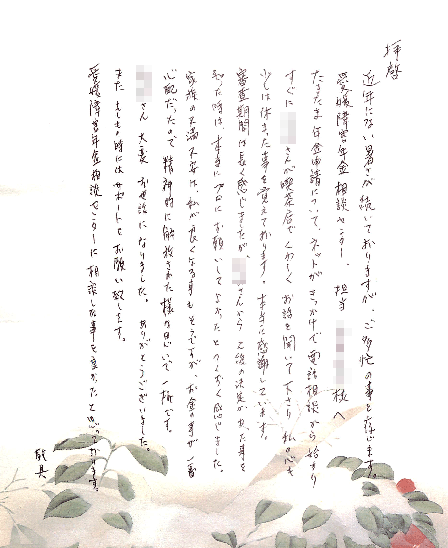 拝啓
近年にない暑さが続いておりますが、ご多忙の事と存じます。
愛媛障害年金相談センター 担当 様へ
たまたま年金申請について、ネットがきっかけで電話相談から始まり
すぐに さんが喫茶店でくわしくお話を聞いて下さり 私の心も
少しは休まった事を覚えております。本当に感謝しています。
審査期間は長く感じましたが、 さんから 決定がおりた事を
知った時は、本当にプロにお願いしてよかったとつくづく感じました。
家族の不満 不安は、私が良くなる事もそうですが、お金の事が一番
心配だったので 精神的に解放された様な思いで一杯です。
さん 大変 お世話になりました。ありがとうございました。
また もしもの時にはサポートを お願い致します。
愛媛障害年金相談センターに相談した事を良かったと思っております。
敬具